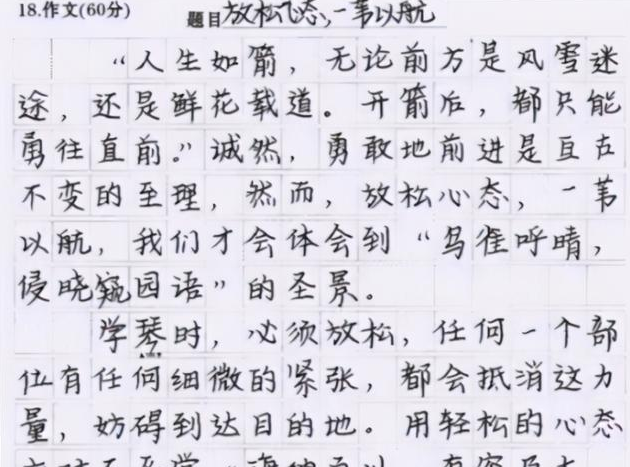 18.作文(60分)
题目 放松心态，一苇以航
“人生如箭，无论前方是风雪迷
途，还是鲜花载道。开箭后，都只能
勇往直前。”诚然，勇敢地前进是亘古
不变的至理，然而，放松心态，一苇
以航，我们才会体会到“鸟雀呼晴，
侵晓窥园语”的圣景。
学琴时，必须放松，任何一个部
位有任何细微的紧张，都会抵消这力
量，妨碍到达目的地。用轻松的心态